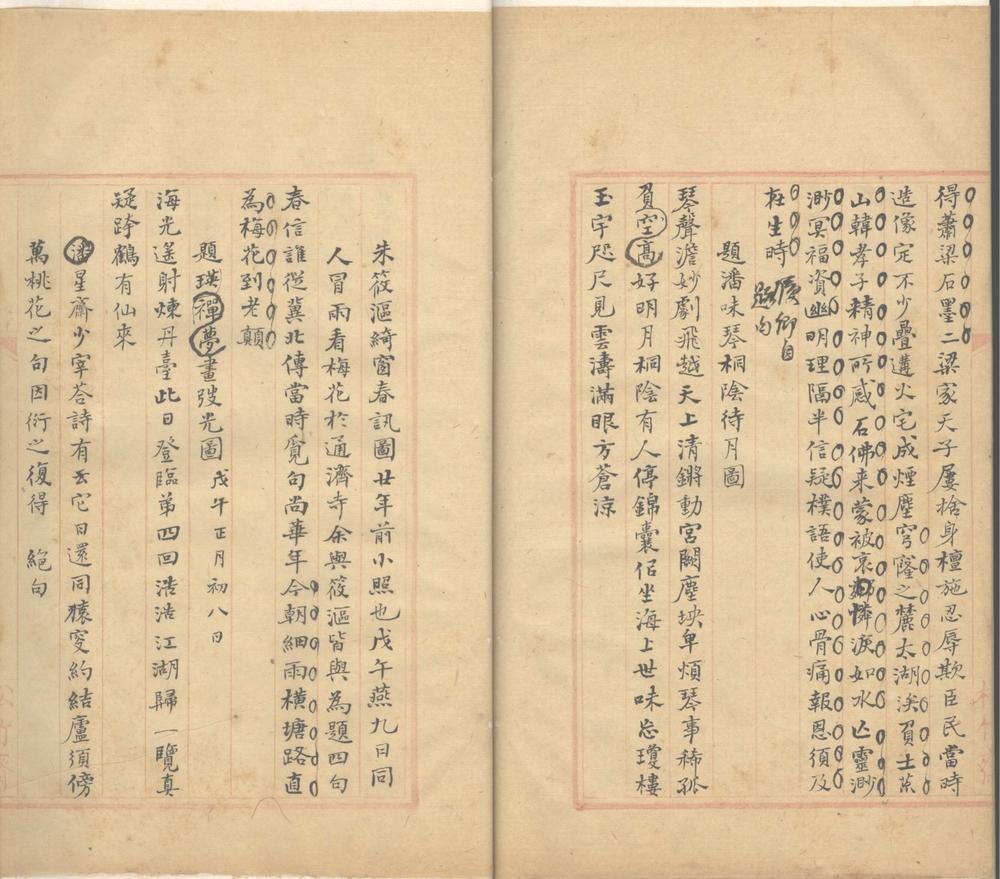 得蕭梁石墨二梁家天子屢捨身檀施忍辱欺臣民當時
造像定不少疊遘火宅成煙塵穹窿之麓太湖涘負土茶
山韓孝子精神所感石佛来蒙被哀憐淚如水亡靈渺
渺冥福資幽明理隔半信疑樸語使人心骨痛報恩須及
在生時
卿自
題句
題潘味琴桐陰待月圖
琴聲澹妙劇飛越天上清鏘動宮闕塵块卑煩琴事稀孤
負空高好明月桐陰有人停錦囊侣坐海上世味忘瓊樓
玉宇咫尺見雲濤滿眼方蒼涼
朱筱漚綺窗春訊圖廿年前小照也戊午燕九日同
人冒雨看梅花於通濟寺余與筱漚皆與為題四句
春信誰從冀北傳當時覓句尚華年今朝細雨橫塘路直
為梅花到老顛
題瑛禪夢畫發光圖 戊午正月初八日
海光遙射煉丹臺此日登臨第四回浩浩江湖歸一覽真
疑跨鶴有仙來
潘星齋少宰荅詩有云它日還同猿叟約結廬須傍
萬桃花之句因衍之復得 絕句